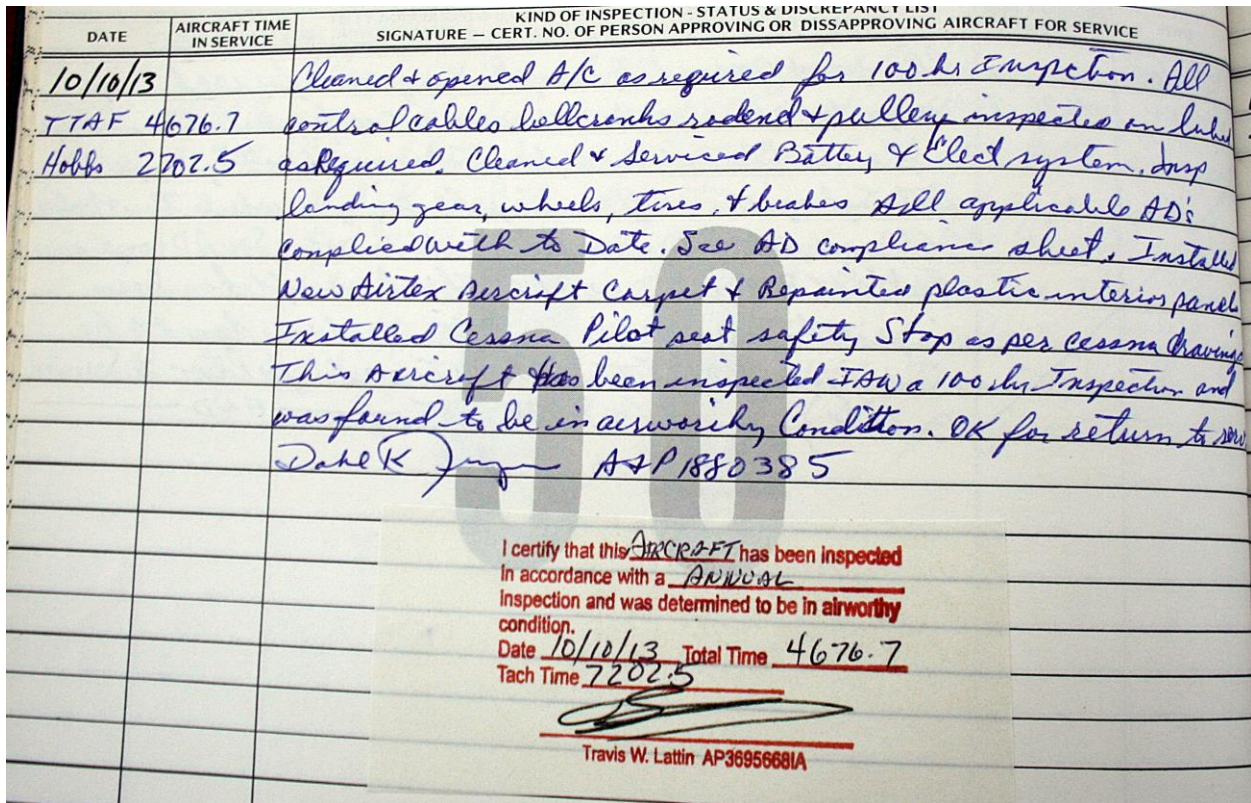 KIND OF INSPECTION - STATUS & DISCREPANCY LIST
DATE AIRCRAFT TIME IN SERVICE SIGNATURE — CERT. NO. OF PERSON APPROVING OR DISSAPPROVING AIRCRAFT FOR SERVICE
10/10/13 Cleaned & opened A/C as required for 100 hr Inspection. All
TTAF 4676.7 control cables bellcranks rodend & pulleys inspected an lubed
Hobbs 2702.5 as Required. Cleaned & Serviced Battery & Elect system. Insp
landing gear, wheels, tires, & brakes All applicable AD's
complied with to Date. See AD compliance sheet. Installed
New Airtex Aircraft Carpet & Repainted plastic interior panels
Installed Cessna Pilot seat safety Stop as per Cessna Drawings
This Aircraft Has been inspected IAW a 100 hr Inspection and
was found to be in airworthy Condition. OK for return to serv.
Dahl K A&P 1880385
50
I certify that this AIRCRAFT has been inspected
in accordance with a ANNUAL
inspection and was determined to be in airworthy
condition.
Date 10/10/13 Total Time 4676.7
Tach Time 7202.5
Travis W. Lattin AP3695668IA